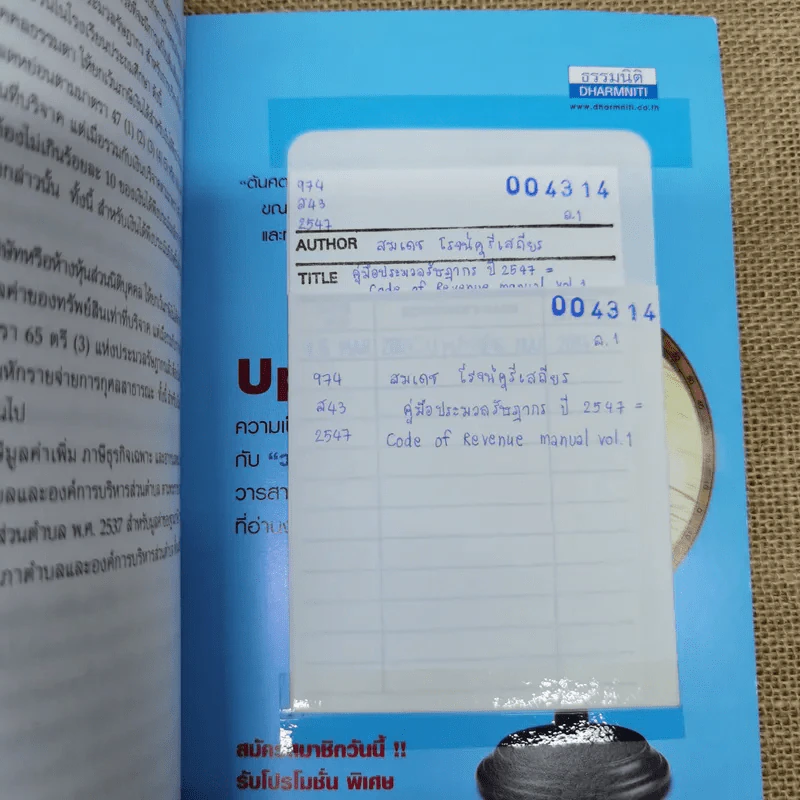 แตหย่อนตามมาตรา 47 (1) (2) (3)
ที่บริจาค แต่เมื่อรวมกับเงินบริจาค
ต้องไม่เกินร้อยละ 10 ของเงินได้
กล่าวนั้น ทั้งนี้ สำหรับเงินได้
ษัทหรือห้างหุ้นส่วนนิติบุคคล
ค่าของทรัพย์สินเท่าที่บริจาค แต่
รา 65 ตรี (3) แห่งประมวลรัษฎากร
หักรายจ่ายการกุศลสาธารณะ
นไป
มูลค่าเพิ่ม ภาษีธุรกิจเฉพาะ
บลและองค์การบริหารส่วนตำบล
ส่วนตำบล พ.ศ. 2537
ภาตำบลและองค์การบริหารส่วน
ธรรมนิติ
DHARMNITI
www.dharmniti.co.th
"ต้นค
ขณ
และก
974
ส43
2547
004314
ล.1
AUTHOR สมเดช โรจน์คุรีเสถียร
TITLE คู่มือประมวลรัษฎากร ปี 2547 =
Code of Revenue manual vol.1
004314
ล.1
974 สมเดช โรจน์คุรีเสถียร
ส43 คู่มือประมวลรัษฎากร ปี 2547 =
2547 Code of Revenue manual vol.1
Up
ความเป
กับ "ว
วารสา
ที่อ่าน
สมัครสมาชิกวันนี้ !!
รับโปรโมชั่น พิเศษ